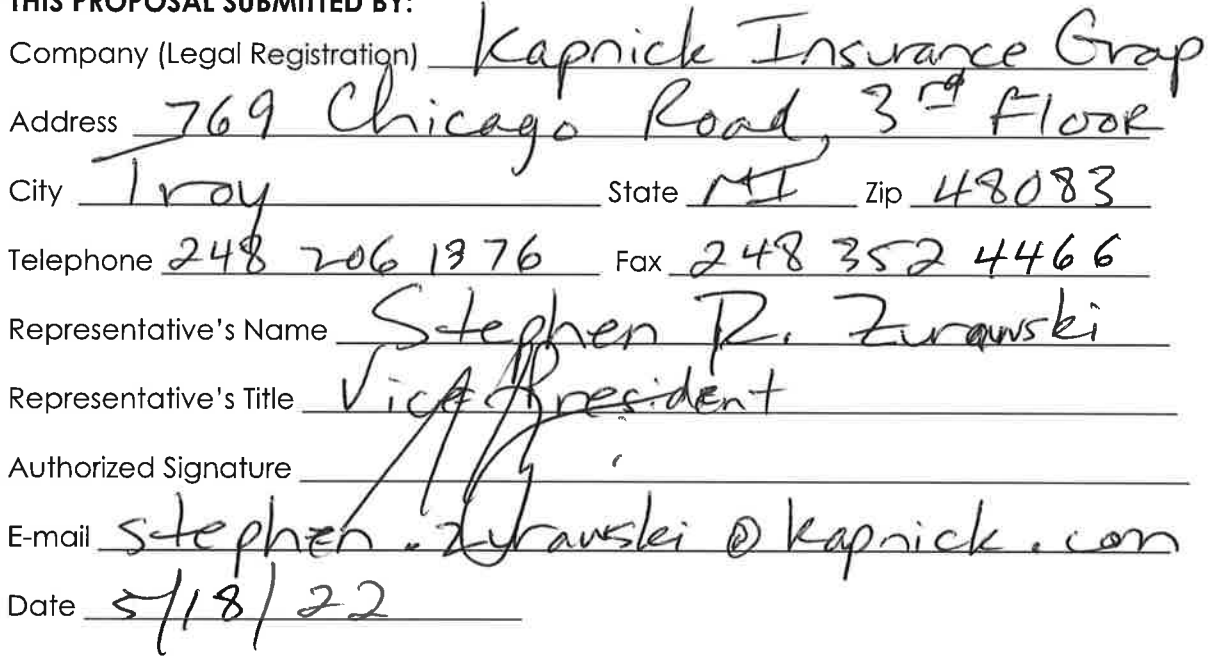 THIS PROPOSAL SUBMITTED BY:
Company (Legal Registration) Kapnick Insurance Group
Address 769 Chicago Road, 3rd Floor
City Troy State MI Zip 48083
Telephone 248 206 1376 Fax 248 352 4466
Representative's Name Stephen R. Zurawski
Representative's Title Vice President
Authorized Signature
E-mail stephen.zurawski@kapnick.com
Date 5/18/22